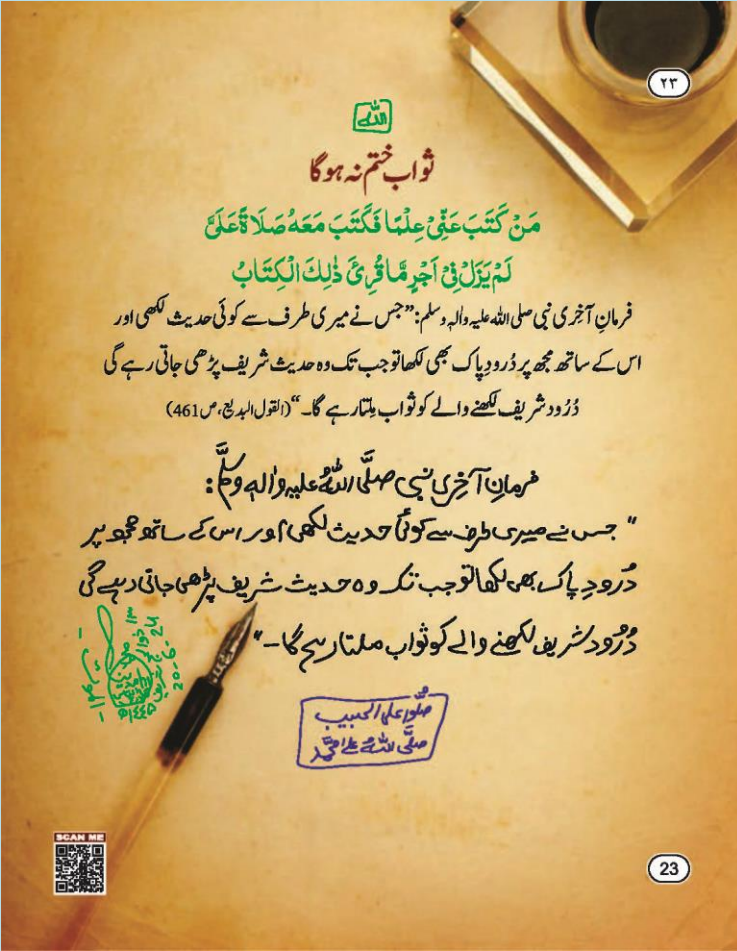 ۲۳
اللہ
ثواب ختم نہ ہوگا
مَنْ كَتَبَ عَنِّیْ عِلْمًا فَكَتَبَ مَعَهُ صَلَاةً عَلَیَّ
لَمْ یَزَلْ فِیْ اَجْرٍ مَّا قُرِئَ ذٰلِكَ الْكِتَابُ
فرمانِ آخِری نبی صلی اللہ علیہ واٰلہٖ وسلم: ”جس نے میری طرف سے کوئی حدیث لکھی اور
اس کے ساتھ مجھ پر دُرودِ پاک بھی لکھا تو جب تک وہ حدیث شریف پڑھی جاتی رہے گی
دُرُود شریف لکھنے والے کو ثواب مِلتا رہے گا۔“ (القول البدیع، ص461)
فرمانِ آخِری نبی صلَّی اللہُ علیہ واٰلہٖ وسلَّم:
”جس نے میری طرف سے کوئی حدیث لکھی اور اس کے ساتھ مجھ پر
دُرودِ پاک بھی لکھا تو جب تک وہ حدیث شریف پڑھی جاتی رہے گی
دُرُود شریف لکھنے والے کو ثواب ملتا رہے گا۔“
20-6-24
صلُّوا علی الحبیب
صلَّی اللہُ علٰی محمَّد
SCAN ME
23